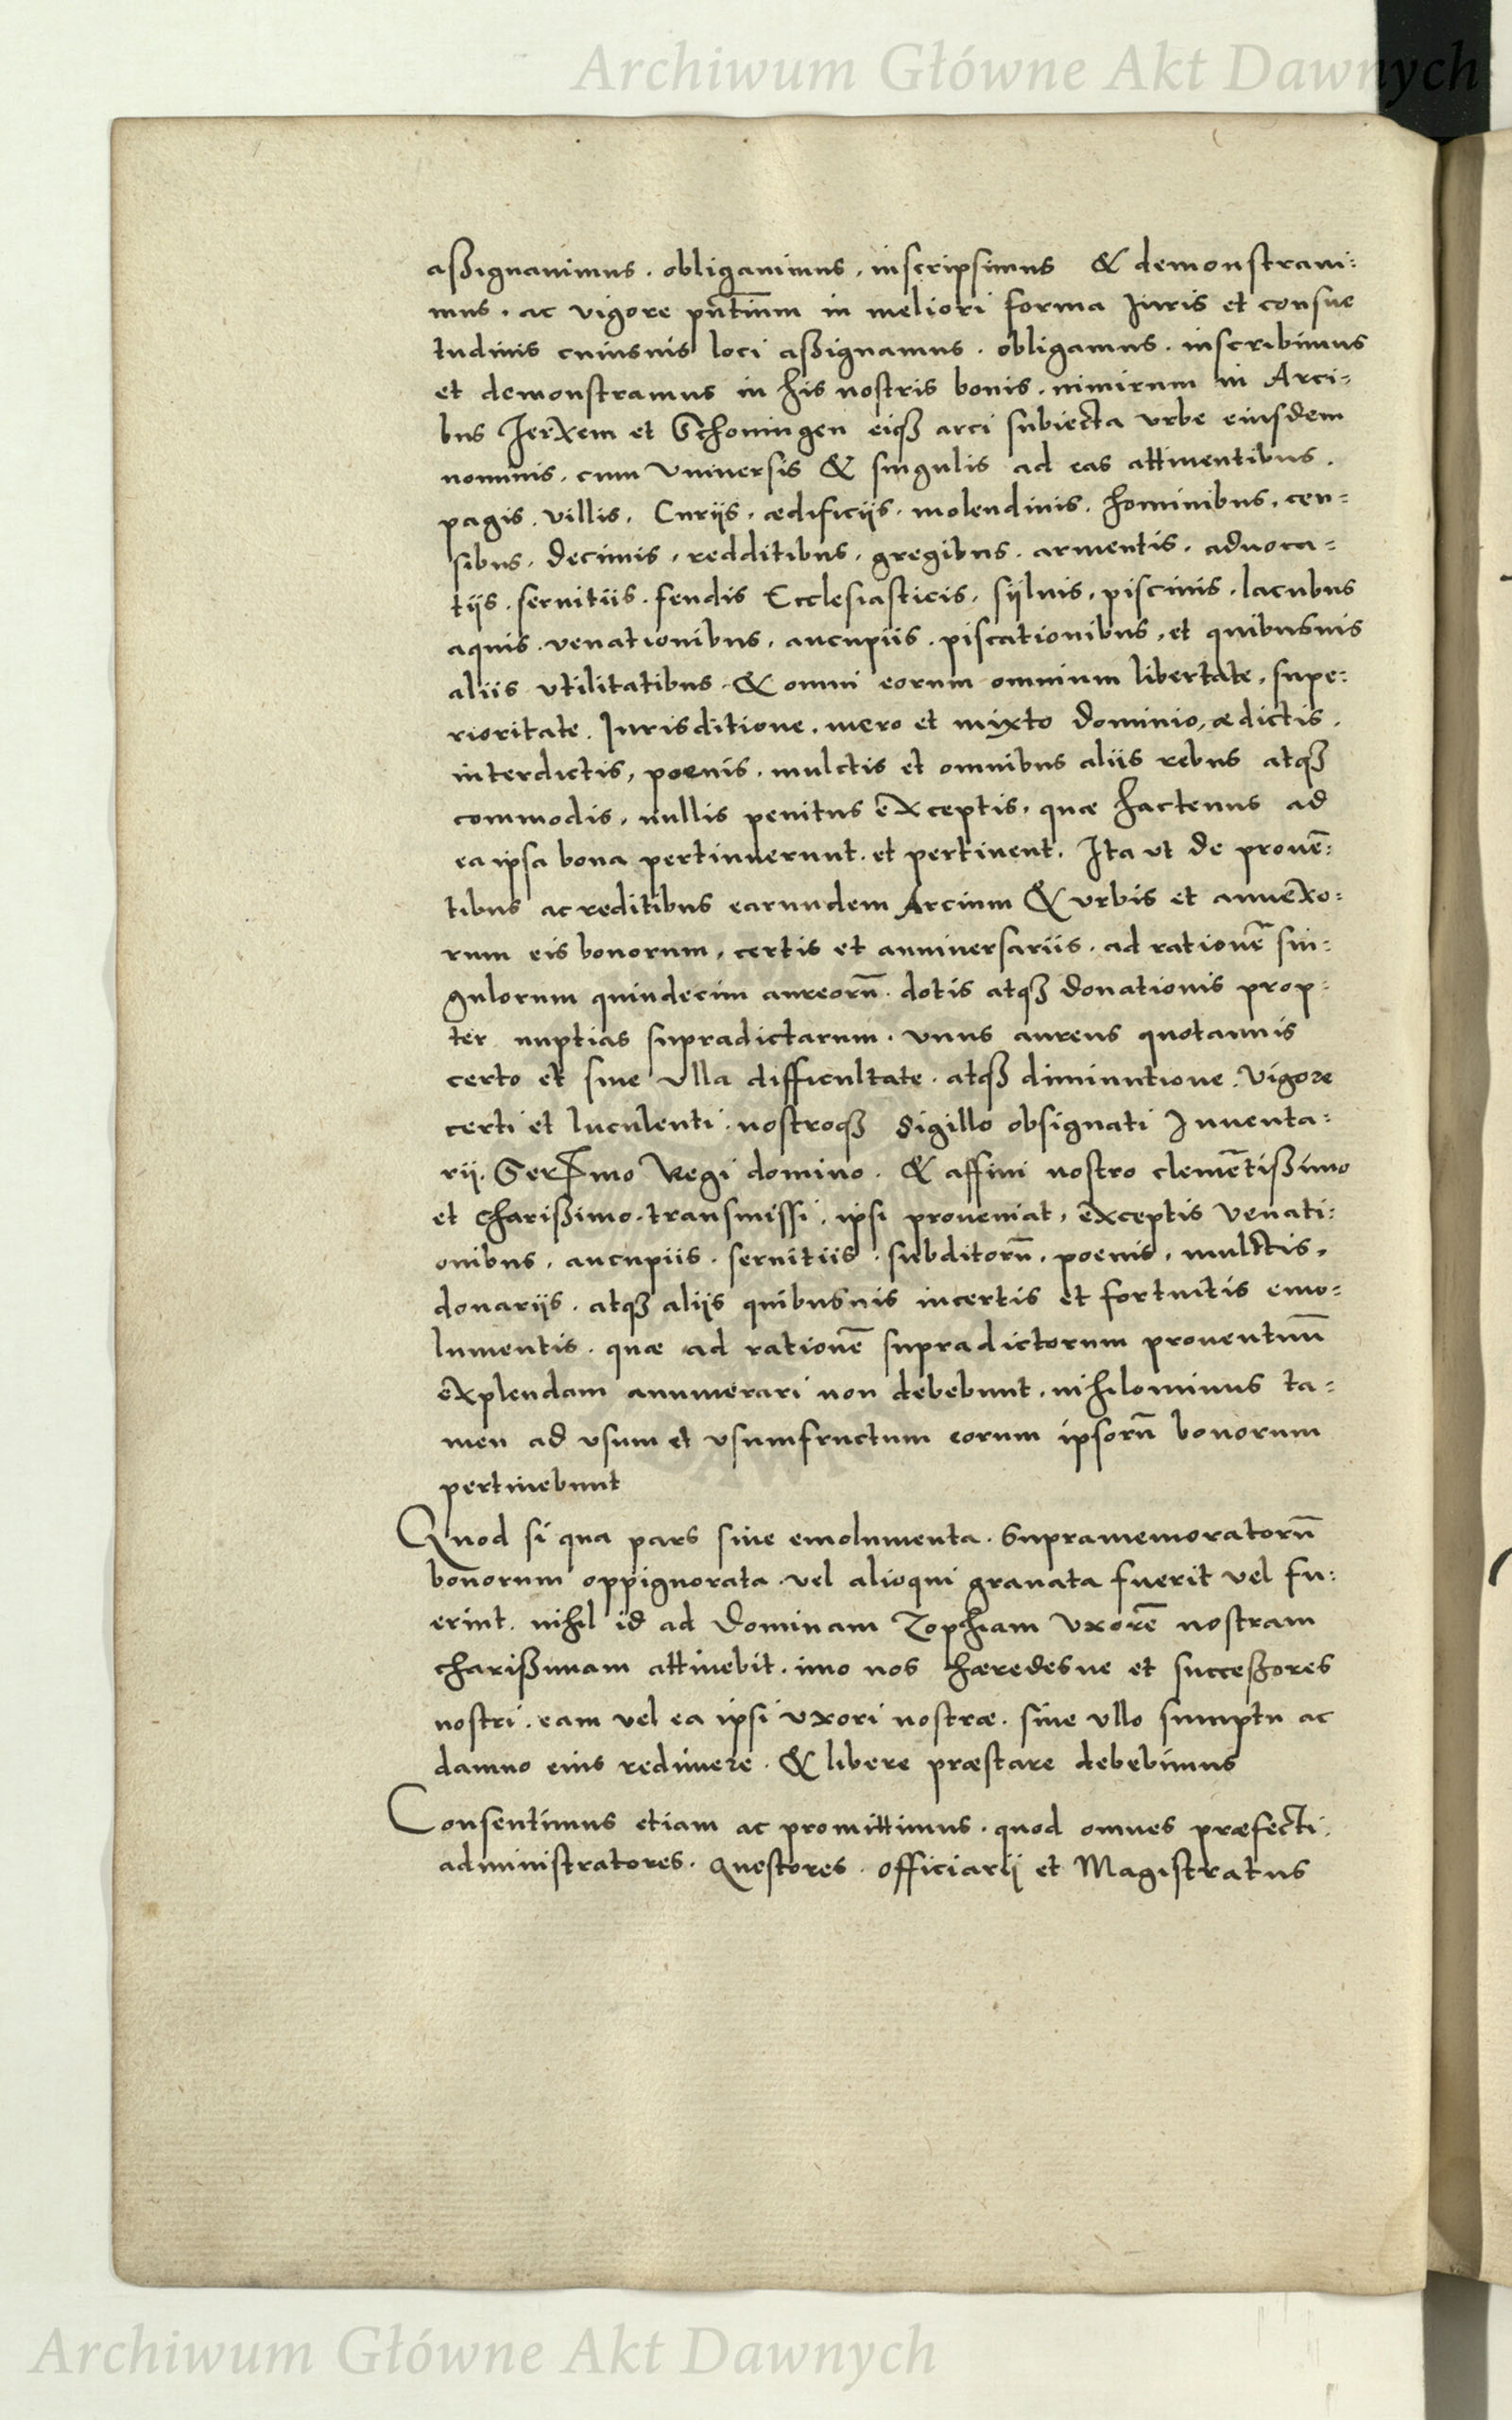 Archiwum Główne Akt Dawnych
aßignauimus . obligauimus . inscripsimus & demonstraui:
mus . ac vigore pñtium in meliori forma Iuris et consue
tudinis cuiusuis loci aßignamus . obligamus . inscribimus
et demonstramus in his nostris bonis . nimirum in Arci=
bus Ierxem et Schoningen eiqʒ arci subiecta vrbe eiusdem
nominis . cum Vniuersis & singulis ad eas attinentibus .
pagis . villis . Curijs . ædificijs . molendinis . hominibus . cen=
sibus . decimis . redditibus . gregibus . armentis . aduoca=
tijs . seruitiis . feudis Ecclesiasticis . syluis . piscinis . lacubus
aquis . venationibus . aucupiis . piscationibus . et quibusuis
aliis vtilitatibus . & omni eorum omnium libertate . supe:
rioritate . Iurisditione . mero et mixto dominio, ædictis .
interdictis, poenis . mulctis et omnibus aliis rebus atqʒ
commodis . nullis penitus exceptis . quæ hactenus ad
ea ipsa bona pertinuerunt . et pertinent . Ita vt de prouē:
tibus ac reditibus earundem Arcium & vrbis et annexo:
rum eis bonorum . certis et anniuersariis . ad rationē sin:
gulorum quindecim aureorū . dotis atqʒ donationis prop:
ter nuptias supradictarum . vnus aureus quotannis
certo et sine vlla difficultate . atqʒ diminutione . Vigore
certi et luculenti . nostroqʒ sigillo obsignati Inuenta:
rij . Serßmo Regi domino . & affini nostro clemētißimo
et charißimo . transmissi . ipsi proueniat . exceptis Venati:
onibus . aucupiis . seruitiis . subditorū . poenis . mulctis .
donarijs . atqʒ alijs quibusuis incertis et fortuitis emo=
lumentis . quæ ad rationē supradictorum prouentuū
explendam annumerari non debebunt . nihilominus ta=
men ad vsum et vsumfructum eorum ipsorū bonorum
pertinebunt
Quod si qua pars siue emolumenta . Supramemoratorū
bonorum oppignorata . vel alioqui grauata fuerit vel fu:
erint . nihil id ad Dominam Zophiam Vxorē nostram
charißimam attinebit . imo nos hæredesue et succeßores
nostri . eam vel ea ipsi vxori nostræ . sine vllo sumptu ac
damno eius redimere . & libere præstare debebimus
Consentimus etiam ac promittimus . quod omnes præfecti .
administratores . Questores . officiarij et Magistratus
Archiwum Główne Akt Dawnych